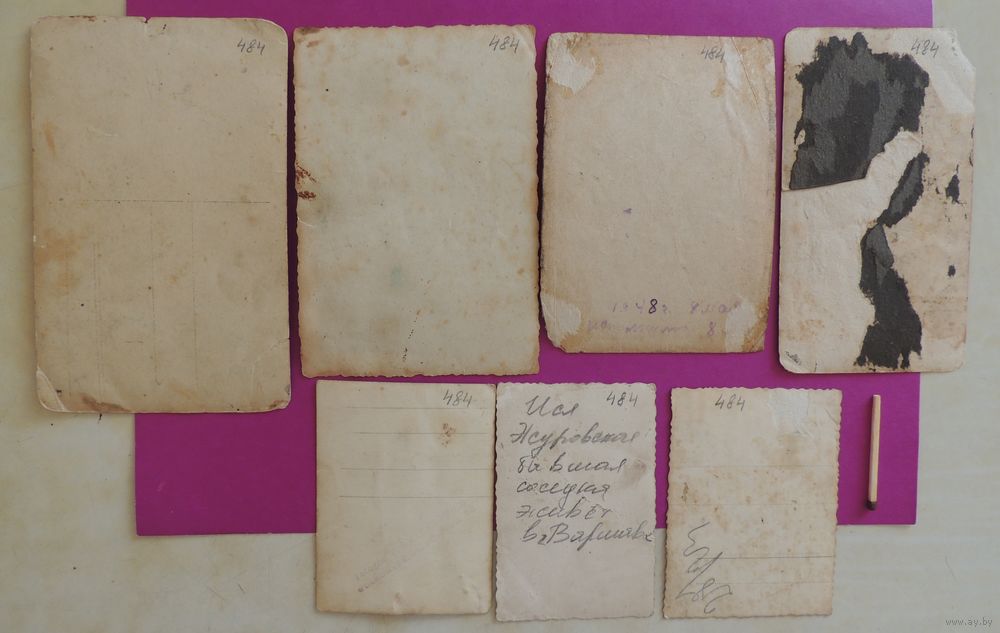 484
484
484
484
1948г. 8 мая
8
484
484
Ися
Журовская
бывшая
соседка
живёт
в г Варшаве
484
www.ay.by